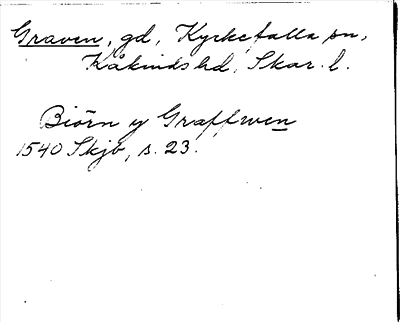 Graven, gd, Kyrkefalla sn,
Kåkinds hd, Skar. l.
Biörn y Graffwen
1540 Skjb, s. 23.